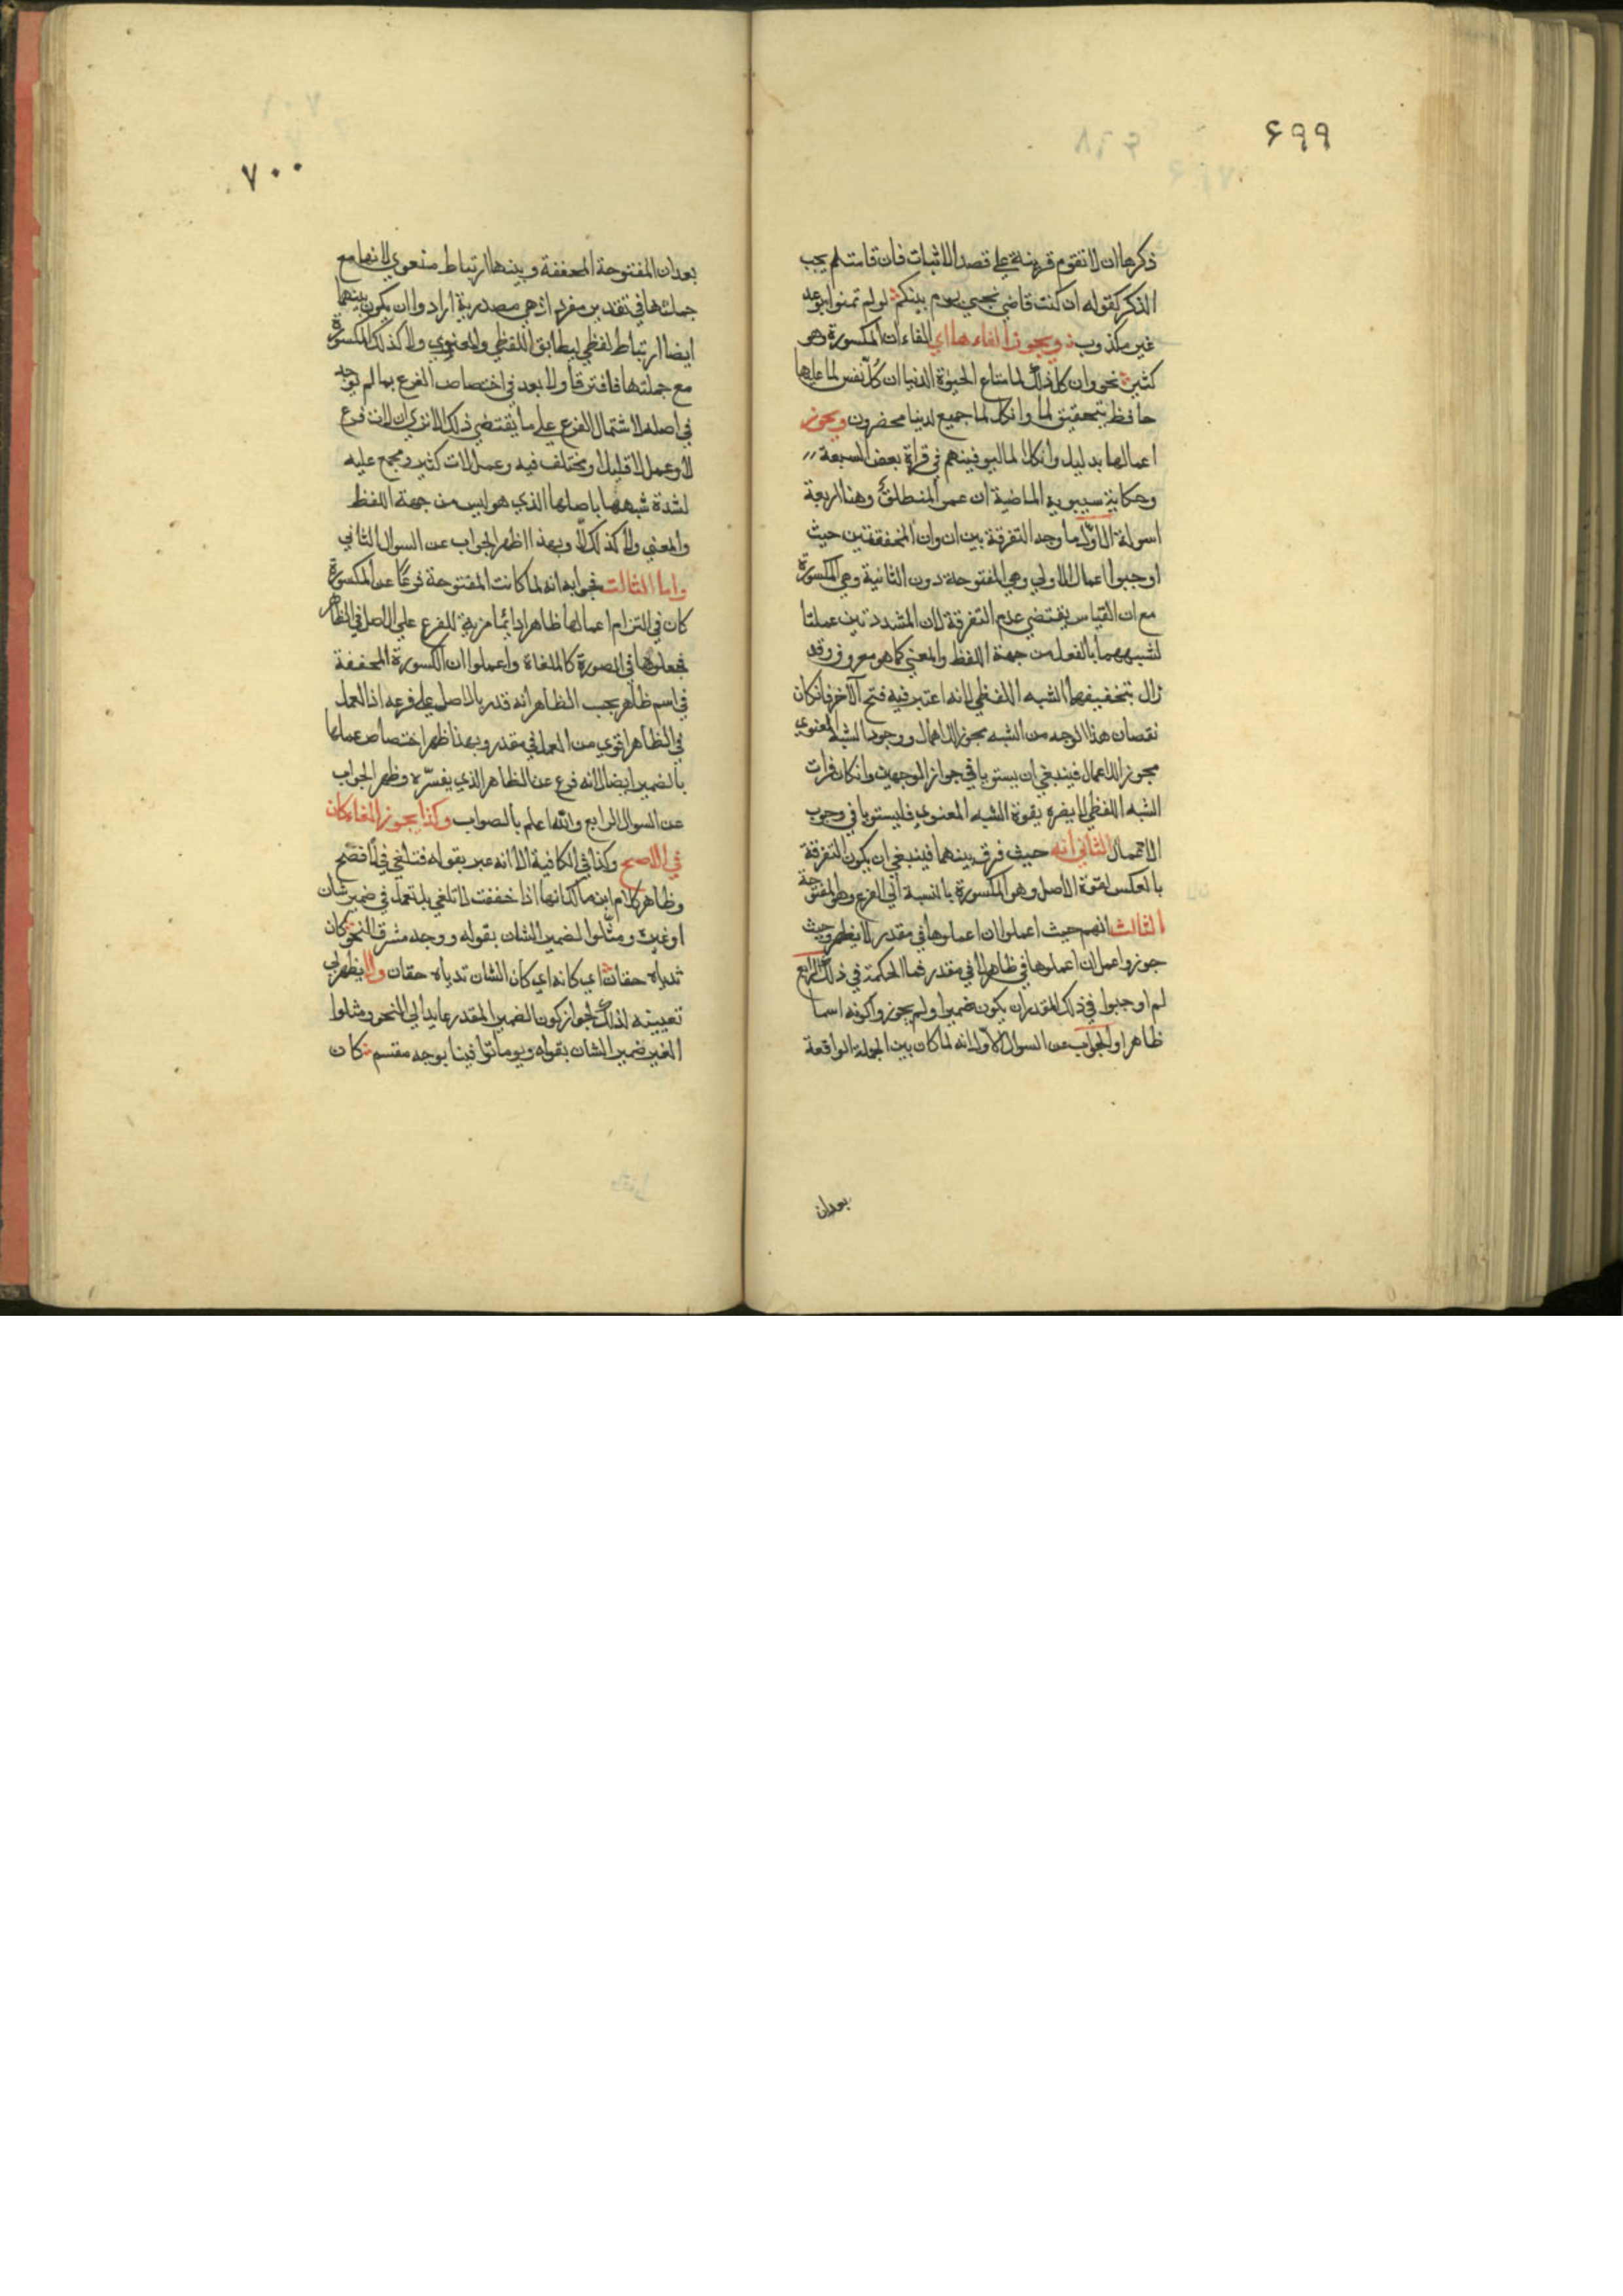 ۶۹۹
ذكرها ان لا تقوم قرينة على قصد الاثبات فان قامت لم يجب
الذكر كقوله ان كنت قاضي نحبي يوم بينكم لو لم تمنوا بوعد
غير مكذوب ويجوز الغاءها اي الغاء ان المكسورة وهو
كثير نحو وان كل ذلك لما متاع الحيوة الدنيا ان كل نفس لما عليها
حافظ بتحقيق لما وان كل لما جميع لدينا محضرون ويجوز
اعمالها بدليل وان كلا لما ليوفينهم في قراة بعض السبعة
وحكاية سيبويه الماضية ان عمرا لمنطلق وهنا اربعة
اسولة الاول ما وجه التفرقة بين ان وان المخففتين حيث
اوجبوا اعمال الاولي وهي المفتوحة دون الثانية وهي المكسورة
مع ان القياس يقتضي عدم التفرقة لان المشددتين عملتا
لشبههما بالفعل من جهة اللفظ والمعني كما هو معروف وقد
زال بتخفيفهما الشبه اللفظي لانه اعتبر فيه فتح الآخر فان كان
نقصان هذا الوجه من الشبه يجوز الاهمال ووجود الشبه المعنوي
مجوز الاعمال فينبغي ان يستويا في جواز الوجهين وان كان فوات
الشبه اللفظي لا يضره بقوة الشبه المعنوي فليستويا في وجوب
الاعمال الثاني انه حيث فرق بينهما فينبغي ان يكون التفرقة
بالعكس لقوة الاصل وهو المكسورة بالنسبة الي الفرع وهو المفتوحة
الثالث انهم حيث اعملوا ان اعملوها في مقدر لا يظهر وحيث
جوزوا عمل ان اعملوها في ظاهر لا في مقدر فما الحكمة في ذلك الرابع
لم اوجبوا في ذلك المقدر ان يكون ضميرا ولم يجوزوا كونه اسما
ظاهرا والجواب عن السوال الاول انه لما كان بين الجملة الواقعة
بعد ان
۷۰۰
بعد ان المفتوحة المخففة وبينها ارتباط معنوي لانها مع
جملتها في تقدير مفرد اذ هي مصدرية ارادوا ان يكون بينهما
ايضا ارتباط لفظي ليطابق اللفظي والمعنوي ولا كذلك المكسورة
مع جملتها فافترقا ولا بعد في اختصاص الفرع بما لم يوجد
في اصله لاشتمال الفرع علي ما يقتضي ذلك الا تري ان لات فرع
لا وعمل لا قليل ومختلف فيه وعمل لات كثير ومجمع عليه
لشدة شبهها باصلها الذي هو ليس من جهة اللفظ
والمعني ولا كذلك لا وبهذا اظهر الجواب عن السوال الثاني
واما الثالث فجوابه انه لما كانت المفتوحة فرعا عن المكسورة
كان في التزام اعمالها ظاهرا دائما مزية للفرع علي الاصل في الظاهر
فجعلوها في الصورة كالملغاة واعملوا ان المكسورة المخففة
في اسم ظاهر يجب الظاهر انه قدر بالاصل علي فرعه اذ العمل
في الظاهر اقوي من العمل في مقدر وبهذا ظهر اختصاص عملها
بالضمير ايضا لانه فرع عن الظاهر الذي يفسره وظهر الجواب
عن السوال الرابع والله اعلم بالصواب وكذا يجوز الغاء كان
في الاصح وكذا في الكافية الا انه عبر بقوله فتلغي في الافصح
وظاهر كلام ابن مالك انها اذا خففت لا تلغي بل تعمل في ضمير شان
او غيره ومثلوا لضمير الشان بقوله ووجه مشرق النحر كان
ثدياه حقان اي كانه اي كان الشان ثدياه حقان ولا يظهر لي
تعيينه لذلك لجواز كون الضمير المقدر عايدا الي النحر ومثلوا
الغير ضمير الشان بقوله ويوما توافينا بوجه مقسم كان